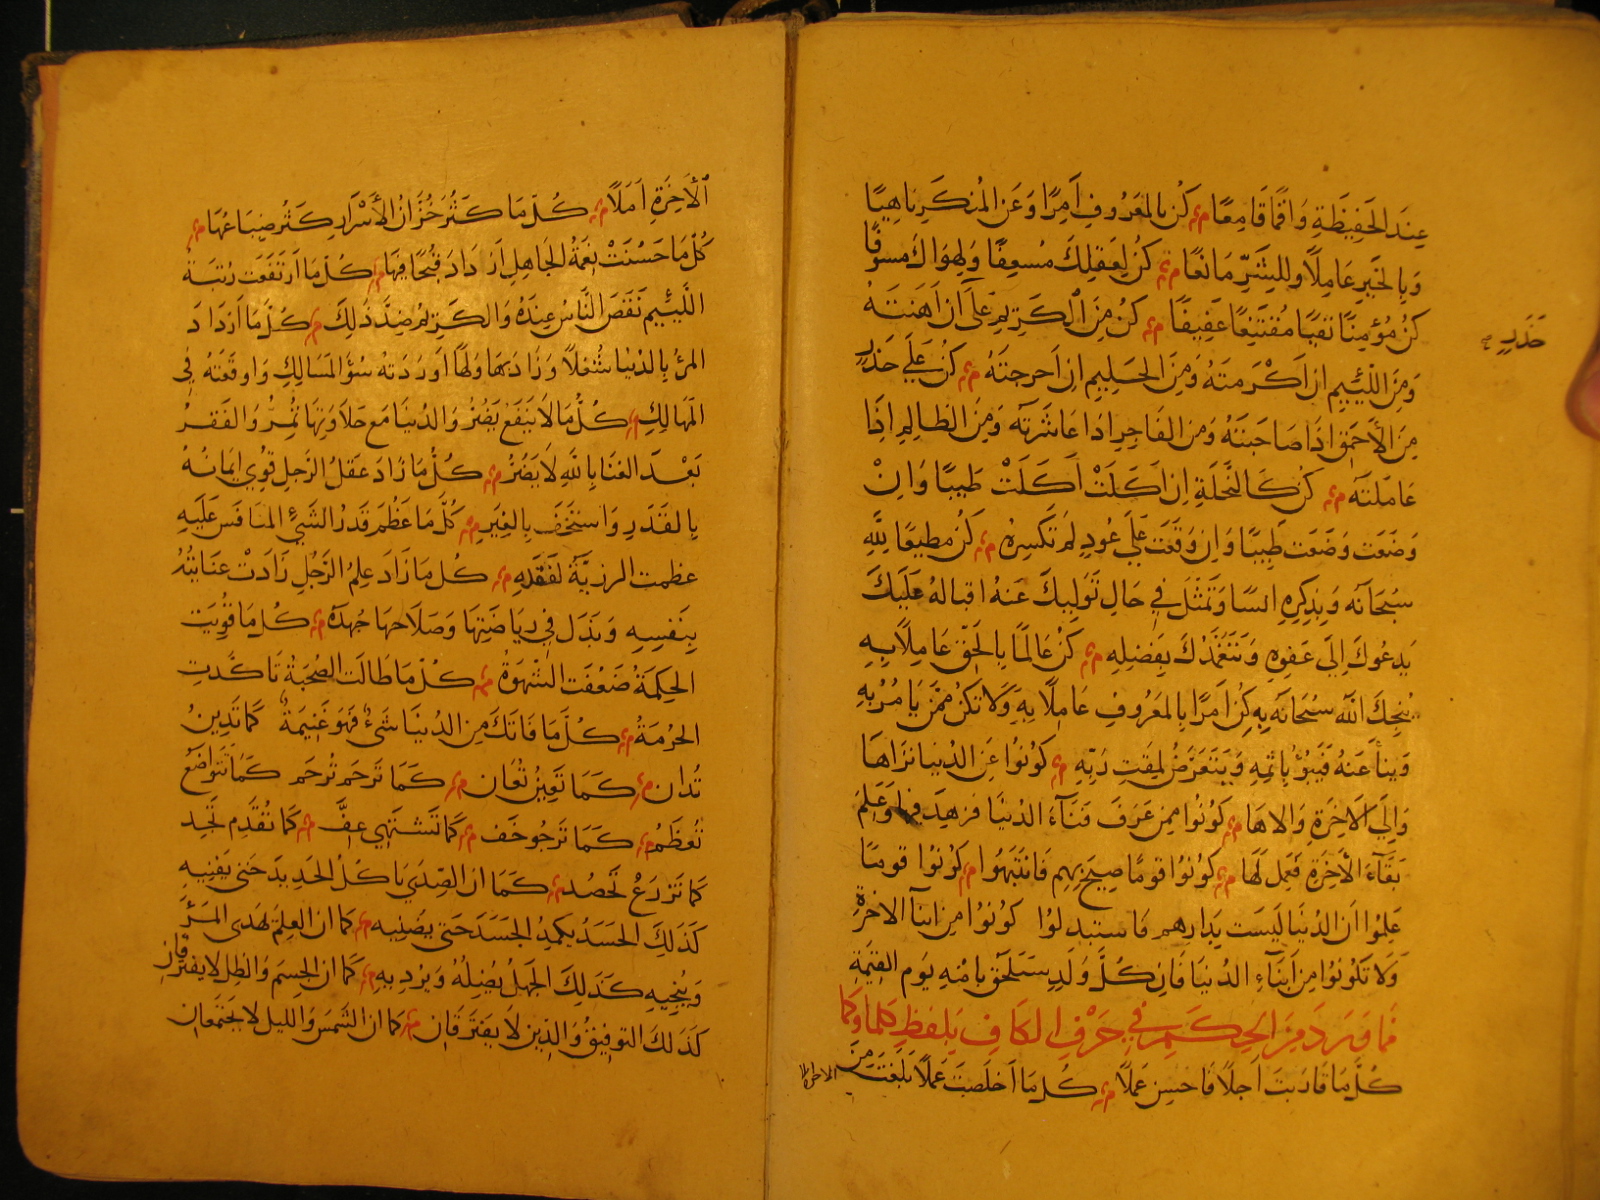 عِندَ الحَفِيظَةِ وَاقمًا قَامِعًا كُن بِالمعَرُوفِ آمِرًا وَعَن المُنكَرِ نَاهِيًا
وَبِالخَيرِ عَامِلًا وللِشَرِّ مَانعًا كُن لِعَقلِكَ مُسعِفًا وَلِهوَاكَ مسَوفًا
كنُ مُؤمِنًا تقيًا مُقتَنِعًا عَفِيفًا كن مِنَ الكَرِيمِ عَلَى حذر ان اَهَنتَهُ
وَمِنَ اللّئِيمِ ان اَكْرَمتَهُ وَمِنَ الحَلِيمِ ان اَحرجتَهُ كنُ عَلَي حَذرٍ
حَذَرٍ
مِنَ الأحَمقِ اذَا صَاحَبتَهُ وَمِن الفَاجِرِ اذَا عَاشَرتَه وَمِنَ الظَالِمِ اذَا
عَامَلتَه كُن كَالنَحلَةِ اِن اَكَلَتْ اَكَلَتْ طَيبًا وَاِنْ
وَضَعَت وَضَعَت طَيِبًا وَاِن وَقَعَت عَلَي عُودٍ لَم تَكسِرهُ كنُ مطِيعًا للِّهِ
سُبحَانَه وَبِذِكرِهِ انسًا وَتَمثَل فِي حَالِ تَوَلِيكَ عَنهُ اقبالهُ عَلَيكَ
يَدعُوكَ اِلَى عَفوِهِ وَيَتَغَمَّدُكَ بِفَضلِهِ كُن عَالمًا بِالحَقِّ عَامِلًا بِهِ
يُنجِكَ اللَّه سُبحَانَه بِهِ كُن آمِرًا بِالمَعرُوفِ عَامِلًا بِهِ وَلَا تَكُن مِمَّن يَامُرُ بِهِ
وَينأَ عَنهُ فَيَبُؤُ بِاثمِهِ وَيَتَعَرَضُ لمِقتِ رَبِّهِ كوُنُوا عَنِ الدُنيَا نزاهَا
وَاِلَي الاَخِرَةِ وَالاهَا كُونُوا مِمن عَرَفَ فَنَاءَ الدُنيَا فزَهِدَ فِيهَا وَعَلِمَ
بَقَاءَ الاَخِرَةِ فَعَمِل لَهَا كوُنوُا قومًا صِيحَ بِهِم فَانتَبَهُوا كوُنُوا قومًا
عَلِمُوا اَن الدُنيَا لَيسَت بِدَارِهِم فَاستَبدلوُا كوُنُوا مِن ابنَاءِ الاخِرَةِ
وَلَا تَكوُنُوا مِن اَبنَاءِ الدُنيَا فَاِن كُلَّ وَلَدٍ سَيَلحَقُ بِامِّهِ يَوم القِيمَةِ
فَمَا وَرَدَ مِنَ الحِكَمِ فِي حَرْفِ الكَافِ بِلَفظِ كُلَّمَا وَكَمَا
كُلَّمَا قَارَبتَ اَجلًا فَاحسِن عَمَلًا كُلمَا اَخلَصتَ عَملًا بَلَغتَ مِنَ
الاخرة
الاَخِرَةِ اَمَلًا كُلّ مَا كَثُرَ خُزَّانُ الأَسْرَارِ كَثُر ضِيَاعُهَا
كُلّ مَا حَسُنَتْ نِعمَةُ الجَاهِلِ اَزدَادَ قبُحًا فِيهَا كُلّ مَا ارتَفَعَت رُتبَةُ
اللَّئِيمِ نَقَصَ النَّاسُ عِندَهُ وَالكَرِيم ضِدَّ ذَلِكَ كُلّ مَا ازدَادَ
المرءُ بِالدُنيَا شُغلًا وَزَادَ بِهَا وَلهًا اَورَدَتهُ سُؤَ المسَالِكِ وَاوقَعَتهُ فِي
المهَالِكِ كُلّ مَا لَا يَنفَعُ يَضُرُّ وَالدُنيَا مَع حَلَاوَتِهَا تُمِرُّ وَالفَقرُ
بَعْدَ الغنَا بِاللهِ لَا يَضُرُّ كُلّ مَا زَادَ عَقلُ الرَجلِ قوِي اِيمَانُهُ
بِالقَدَرِ وَاستَخَفَّ بِالغِيَرِ كُلَّ مَا عَظُمَ قَدرُ الشَيءِ المنَافَسِ عَلَيهِ
عظمت الرزِيَّةُ لفَقدِهِ كُل مَا زَادَ عِلمُ الرَجُلِ زَادَتْ عنَايَتُهُ
بِنَفسِهِ وَبَذَل فِي رِيَاضَتِهَا وَصَلَاحهَا جُهدَهُ كُل مَا قَوِيَت
الحِكمَةُ ضَعُفَت الشَهوَةُ كُلّ مَا طَالَت الصُحبَةُ تَاكَّدت
الحُرمَةُ كُلّ مَا فَاتَكَ مِن الدُنيَا شَيءٌ فهُوَ غَنِيمَةٌ كمَا تَدِينُ
تُدان كَمَا تعَينُ تُعَان كَمَا تَرحَم تُرحَم كَمَا تَتَواضَعُ
تُعَظَمُ كَمَا تَرجُو خَف كَمَا تَشتَهِي عِفَّ كمَا تُقدِم تَجِد
كمَا تَزرَعُ تَحصُد كَمَا ان الصِّدَى يَاكلُ الحَدِيدَ حَتى يفنِيهِ
كَذَلِكَ الحَسَدُ يكمِدُ الجسَدَ حَتى يضنِيه كمَا ان العِلمَ يَهدِى المَرْءَ
وَيُنجِيهِ كذَلِكَ الجَهلُ يُضِلّهُ وَيردِيهِ كمَا ان الجِسمَ وَالظِل لَا يفترقان
كَذلكَ التوفِيقُ وَالدِين لَا يَفترَقَان كمَا ان الشَمسَ وَالليلَ لا يَجتَمِعَان